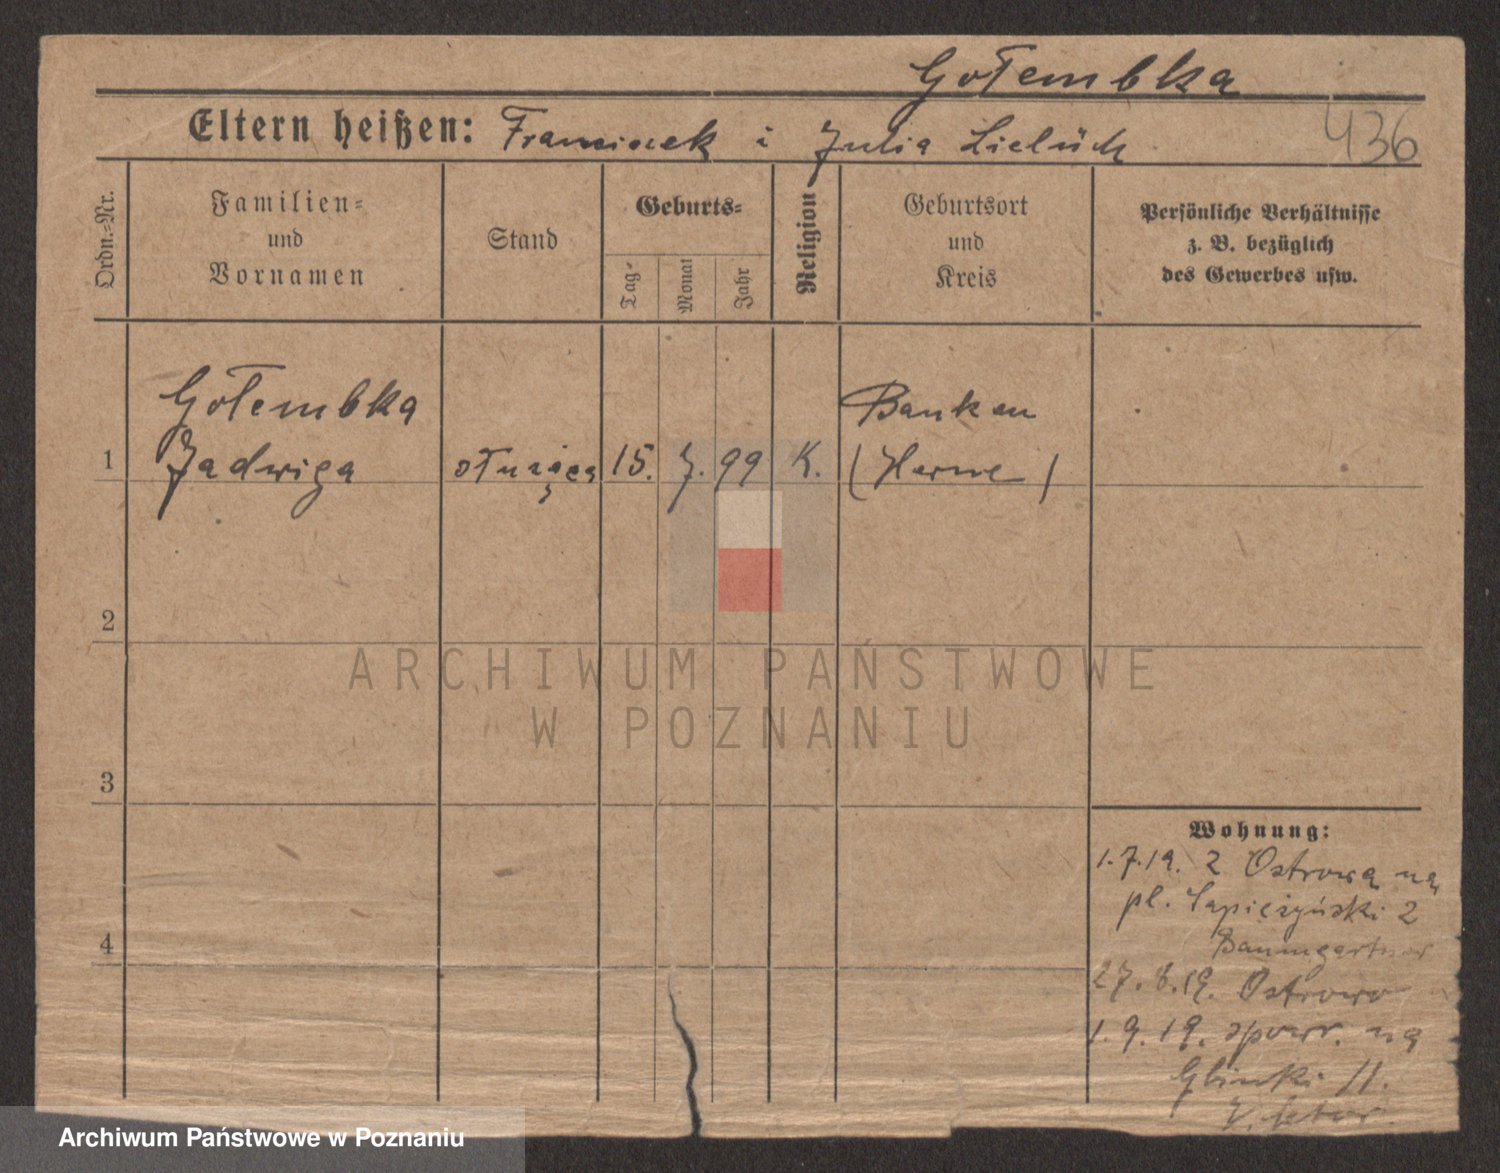 Gołembka
Eltern heißen: Franciszek i Julia Lielück
436
Ordn.=Nr.
Familien=
und
Vornamen
Stand
Geburts=
Tag=
Monat
Jahr
Religion
Geburtsort
und
Kreis
Persönliche Verhältnisse
z. B. bezüglich
des Gewerbes usw.
Gołembka
Jadwiga
1
służąca
15.
7.
99
K.
Baukau
(Herne)
2
3
4
Wohnung:
1.7.19. z Ostrowa na
pl. Sapieżyński 2
Baumgartner
27.8.19. Ostrowo
1.9.19. spowr. na
Glinki 11.
ARCHIWUM PAŃSTWOWE
W POZNANIU
Archiwum Państwowe w Poznaniu